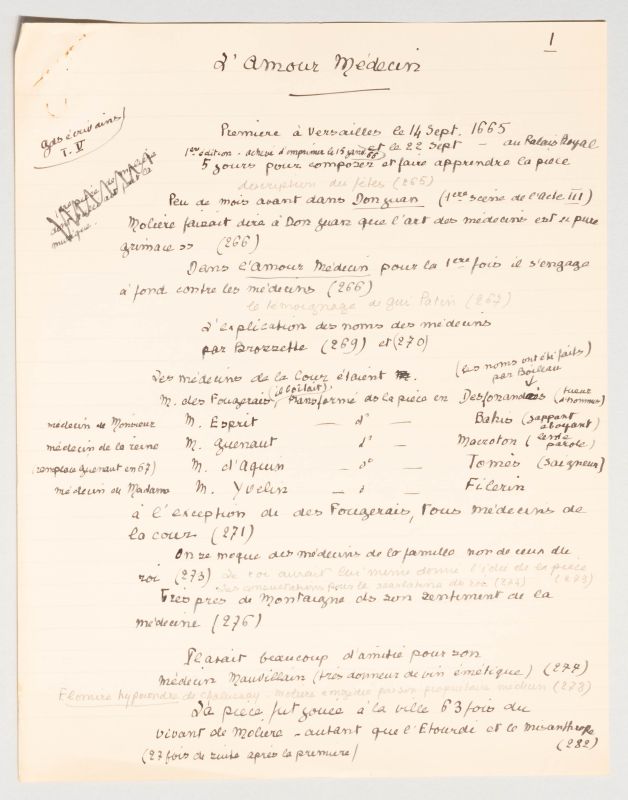 1
L'Amour Médecin
gds écrivains
T. V
Première à Versailles le 14 Sept. 1665
1ère édition - achevé d'imprimer le 15 janv 66
et le 22 Sept - au Palais Royal
5 jours pour composer et faire apprendre la pièce
description des fêtes (265)
musique.
Peu de mois avant dans Don Juan (1ère scène de l'acte III)
Molière faisait dire à Don Juan que l'art des médecins est "pure
grimace" (266)
Dans l'Amour Médecin pour la 1ère fois il s'engage
à fond contre les médecins (266)
le témoignage de Gui Patin (267)
L'explication des noms des médecins
par Brossette (269) et (270)
(les noms ont été faits
par Boileau)
Les médecins de la Cour étaient
M. des Fougerais, (il boitait) transformé ds la pièce en Desfonandrès (tueur d'hommes)
médecin de Monsieur M. Esprit — do — Bahis (jappant aboyant)
médecin de la reine M. Guenaut — do — Macroton (lente parole)
(remplace Guenaut en 67) M. d'Aquin — do — Tomès (saigneur)
médecin de Madame M. Yvelin — d — Filerin
à l'exception de des Fougerais, tous médecins de
la cour (271)
On se moque des médecins de la famille non de ceux du
roi (273) Le roi aurait lui même donné l'idée de la pièce (273)
Les consultations pour la scarlatine du roi (274)
Très près de Montaigne ds son sentiment de la
médecine (276)
Il avait beaucoup d'amitié pour son
médecin Mauvillain (très donneur de vin émétique) (277)
Elomire hypocondre de Chalussay - Molière congédié par son propriétaire médecin (278)
La pièce fut jouée à la ville 63 fois du
vivant de Molière - autant que l'Etourdi et le Misanthrope
(282)
(27 fois de suite après la première)